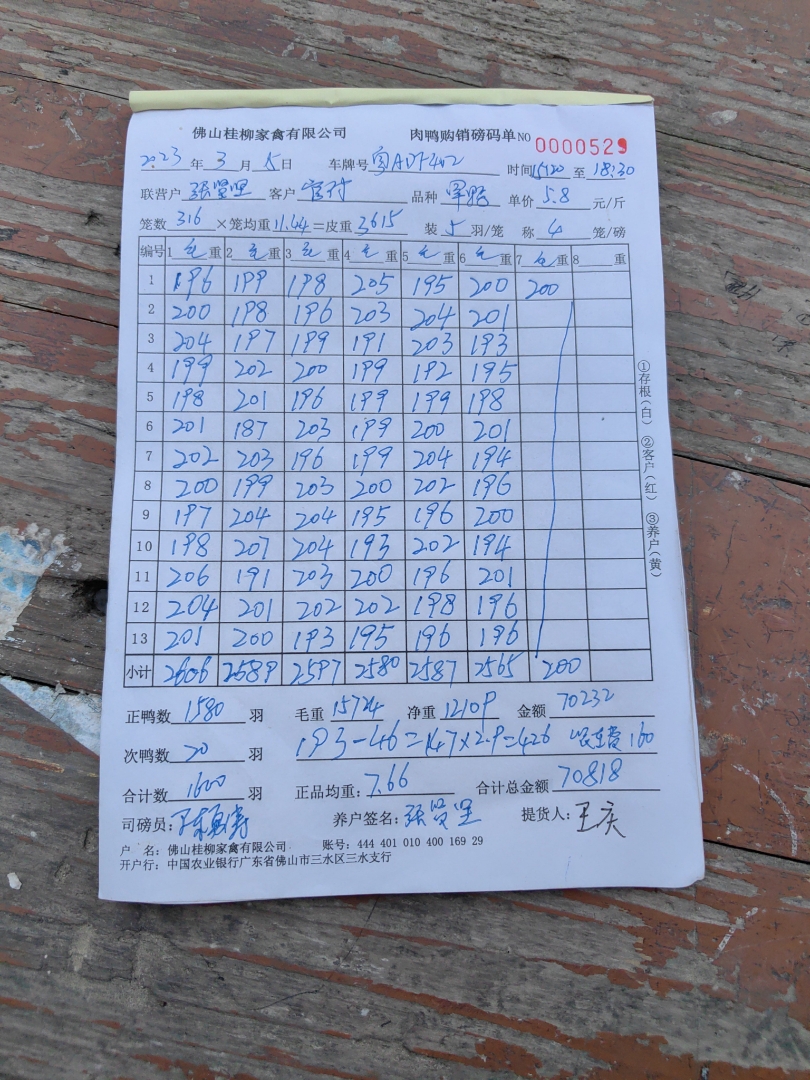 佛山桂柳家禽有限公司 肉鸭购销磅码单 NO 0000529
2023年3月5日 车牌号 时间15:20至18:30
联营户 张贤里 客户 品种 单价5.8元/斤
笼数316×笼均重11.44=皮重3615 装5羽/笼 称4笼/磅
编号 1毛重 2毛重 3毛重 4毛重 5毛重 6毛重 7毛重 8重
1 196 199 198 205 195 200 200
2 200 198 196 203 204 201
3 204 197 199 191 203 193
4 199 202 200 199 192 195
5 198 201 196 199 199 198
6 201 187 203 199 200 201
7 202 203 196 199 204 194
8 200 199 203 200 202 196
9 197 204 204 195 196 200
10 198 207 204 193 202 194
11 206 191 203 200 196 201
12 204 201 202 202 198 196
13 201 200 193 195 196 196
小计 2606 2589 2597 2580 2587 2565 200
正鸭数1580羽 毛重15724 净重12109 金额70232
次鸭数20羽 193-46=147×2.9=426 160
合计数1600羽 正品均重:7.66 合计总金额70818
司磅员: 养户签名: 张贤里 提货人: 王庆
户 名: 佛山桂柳家禽有限公司 账号: 444 401 010 400 169 29
开户行: 中国农业银行广东省佛山市三水区三水支行
①存根(白) ②客户(红) ③养户(黄)